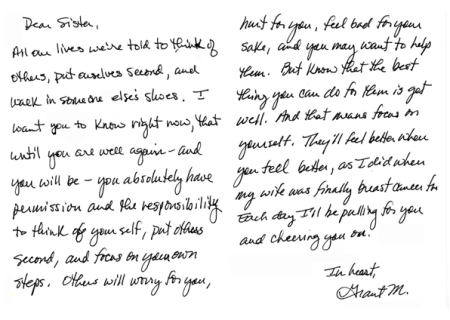 Dear Sister,
All our lives we're told to think of
others, put ourselves second, and
walk in someone else's shoes. I
want you to know right now, that
until you are well again – and
you will be – you absolutely have
permission and the responsibility
to think of yourself, put others
second, and focus on your own
steps. Others will worry for you,
hurt for you, feel bad for your
sake, and you may want to help
them. But know that the best
thing you can do for them is get
well. And that means focus on
yourself. They'll feel better when
you feel better, as I did when
my wife was finally breast cancer free.
Each day I'll be pulling for you
and cheering you on.
In heart,
Grant M.